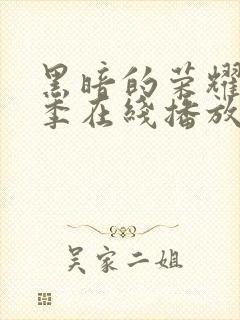 黑暗的荣耀
季在线播放
吴家二姐